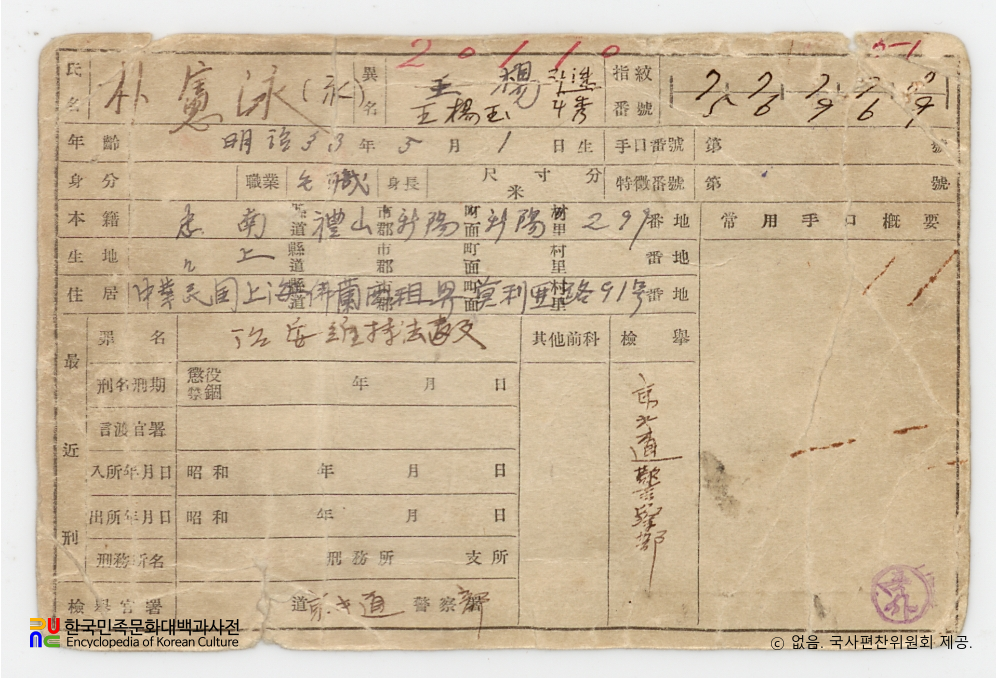 20110
氏名 朴憲泳(永) 異名 王楊玉 指紋番號
年齡 明治33年5月1日生 手口番號 第 號
身分 職業 無職 身長 尺寸分 米 特徵番號 第 號
本籍 忠南 縣道 禮山 市郡 新陽 町面 新陽 村里 299 番地 常用手口概要
生地 仝上 縣道 市郡 町面 村里 番地
住居 中華民國上海佛蘭西租界 縣道 市郡 町面 村里 91号 番地
最近刑
罪名 治安維持法違反 其他前科 檢擧
刑名刑期 懲役 禁錮 年 月 日
言渡官署
入所年月日 昭和 年 月 日
出所年月日 昭和 年 月 日
刑務所名 刑務所 支所
京畿道警察部
檢擧官署 道 京畿道 警察署 部
한국민족문화대백과사전
Encyclopedia of Korean Culture
ⓒ 없음. 국사편찬위원회 제공.